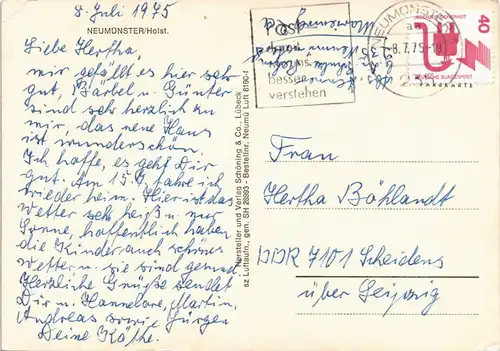 8. Juli 1975
NEUMÜNSTER/Holst.
Liebe Hertha
mir gefällt es hier sehr
gut, Bärbel u. Günter
sind sehr herzlich zu
mir, das neue Haus
ist wunderschön.
Ich hoffe, es geht Dir
gut. Am 15.7. fahre ich
wieder heim. Hier ist das
Wetter sehr heiß u. nur
Sonne, hoffentlich haben
die Kinder auch schönes
Wetter u. sie sind gesund.
Herzliche Grüße sendet
Dir u. Hannelore, Martin,
Andreas sowie Jürgen
Deine Käthe.
Hersteller und Verlag Schöning & Co., Lübeck
sz Luftaufn., gen. SH 28093 · Bestellnr. Neumü Luft 8190-f
besser
verstehen
NEUMÜNSTER
-8.7.75-18
40
DEUTSCHE BUNDESPOST
Frau
Hertha Böhlandt
DDR 7101 Scheidens
über Leipzig